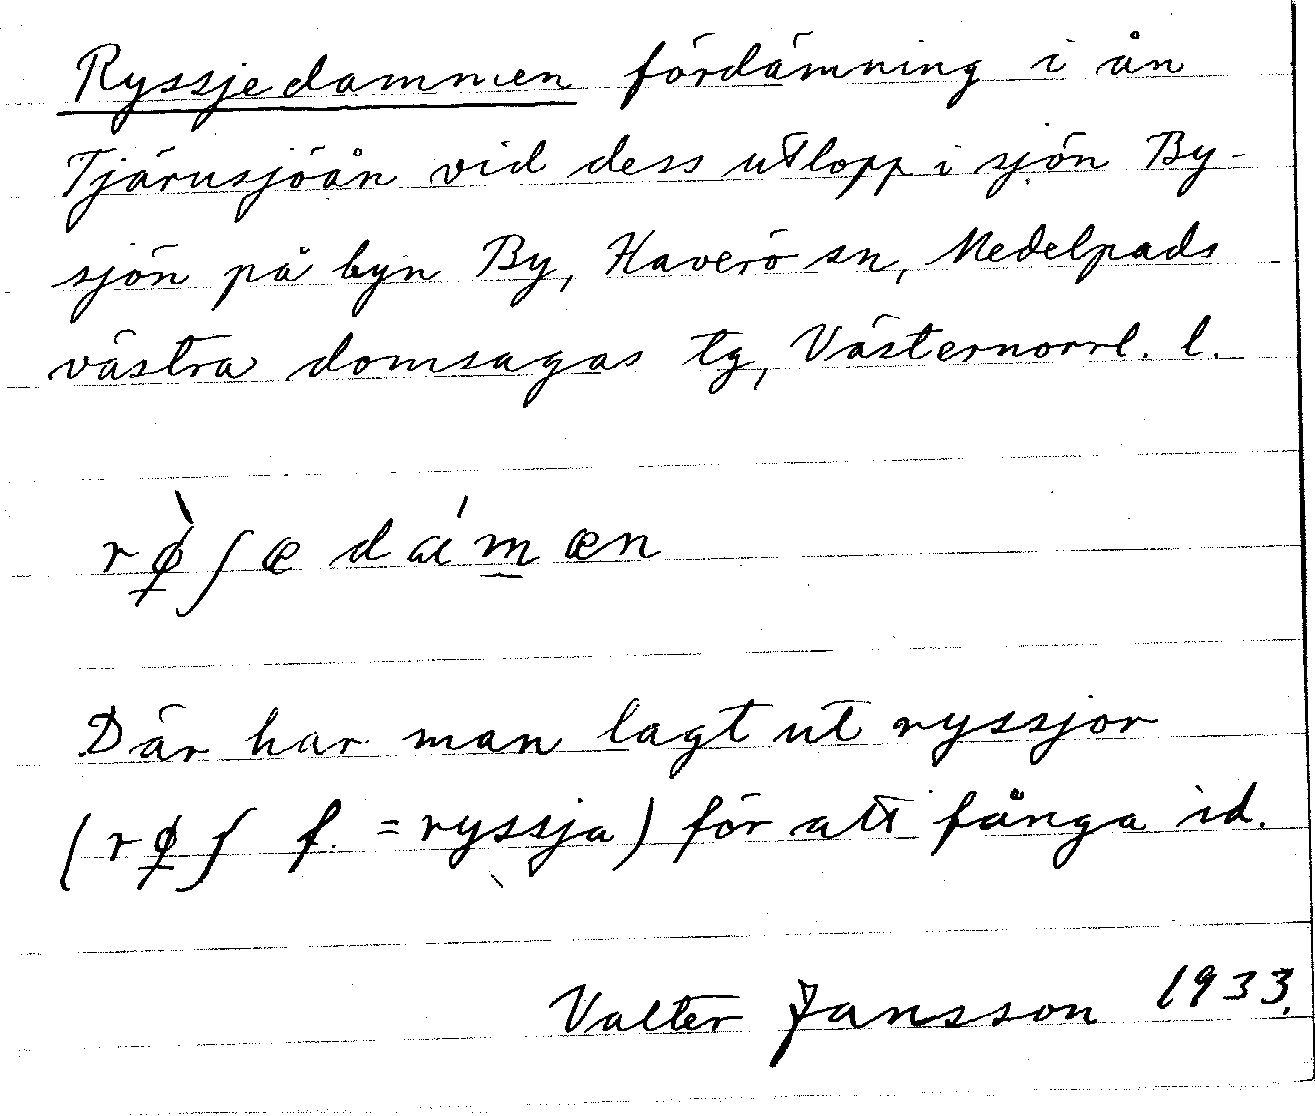 Ryssjedammen fördämning i ån
Tjärusjöån vid dess utlopp i sjön By-
sjön på byn By, Haverö sn, Medelpads
västra domsagas tg, Västernorrl. l.
rø̀ʃædámæn
Där har man lagt ut ryssjor
(røʃ f. = ryssja) för att fånga id.
Valter Jansson 1933.